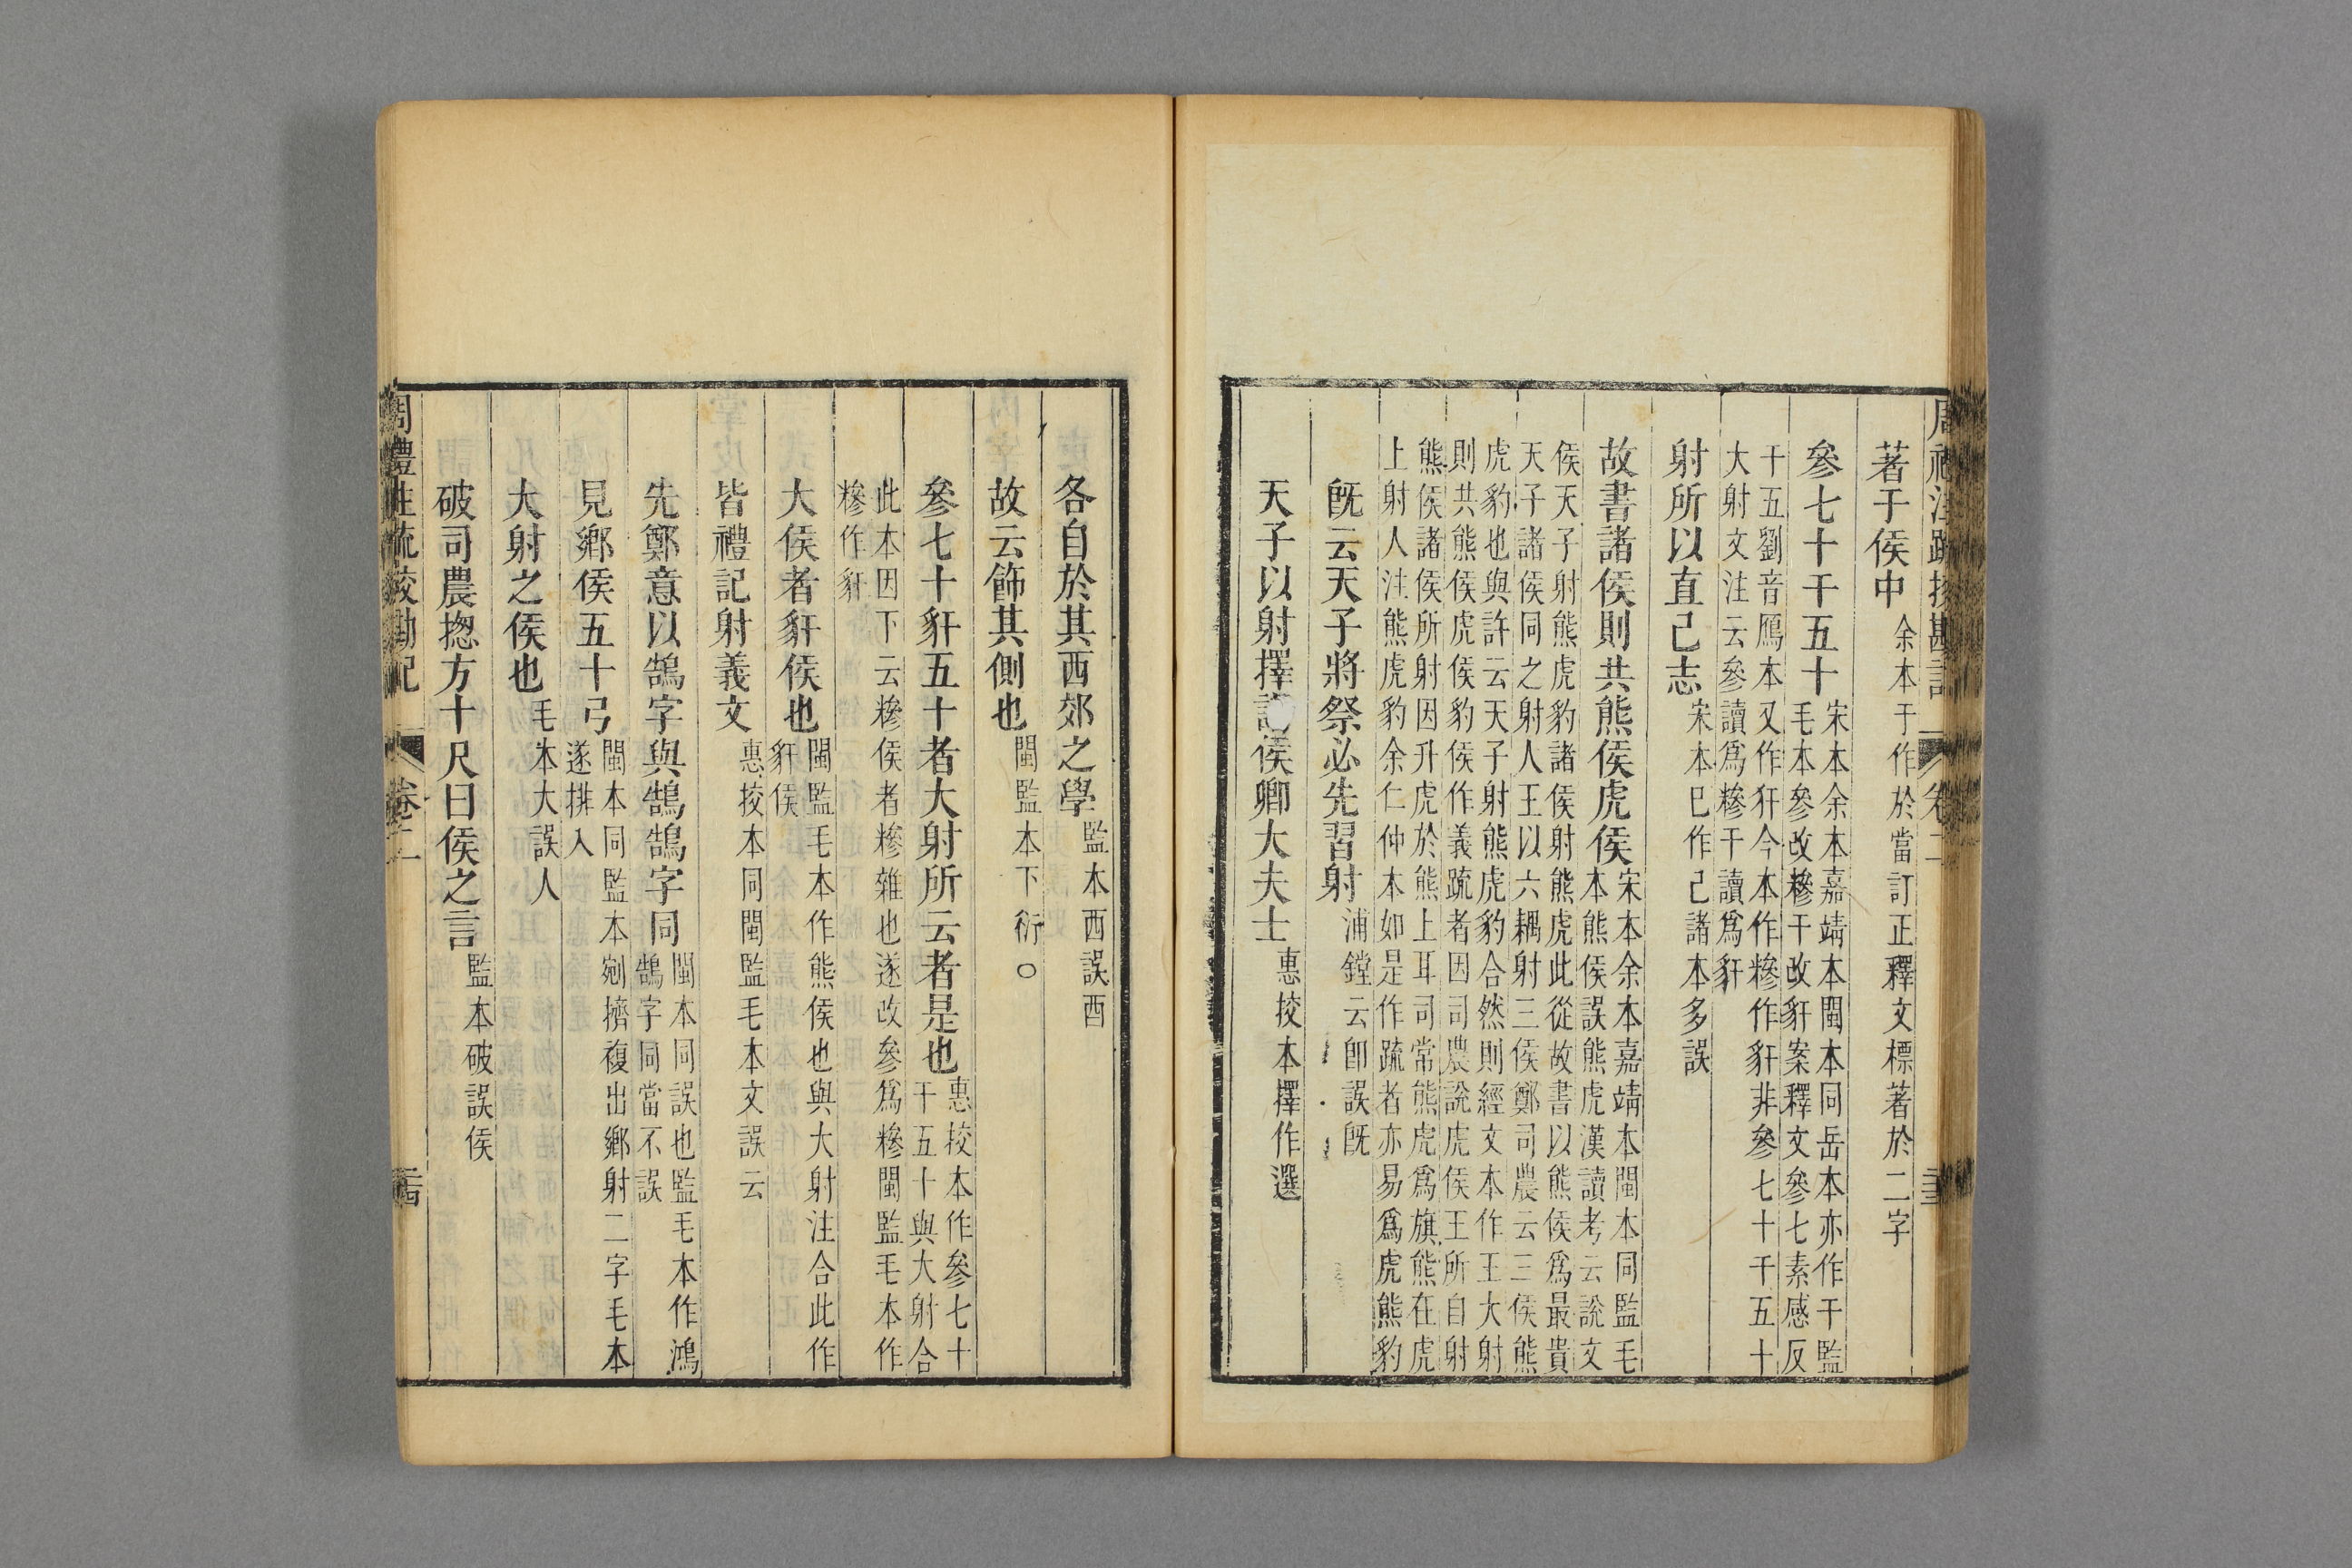 周禮注疏挍勘記 卷二
著于侯中余本于作於當訂正釋文標著於二字
參七十干五十宋本余本嘉靖本閩本同岳本亦作干監
毛本參改糝干改豻案釋文參七素感反
干五劉音鴈本又作犴今本作糝作豻非參七十干五十
大射文注云參讀爲糝干讀爲豻
射所以直己志宋本巳作己諸本多誤
故書諸侯則共熊侯虎侯宋本余本嘉靖本閩本同監毛
本熊侯誤熊虎漢讀考云說文
侯天子射熊虎豹諸侯射熊虎此從故書以熊侯爲最貴
天子諸侯同之射人王以六耦射三侯鄭司農云三侯熊
虎豹也與許云天子射熊虎豹合然則經文本作王大射
則共熊侯虎侯豹侯作義疏者因司農說虎侯王所自射
熊侯諸侯所射因升虎於熊上耳司常熊虎爲旗熊在虎
上射人注熊虎豹余仁仲本如是作疏者亦易爲虎熊豹
旣云天子將祭必先習射浦鏜云卽誤旣
天子以射擇諸侯卿大夫士惠挍本擇作選
各自於其西郊之學監本西誤酉
故云飾其側也閩監本下衍○
參七十豻五十者大射所云者是也惠挍本作參七十
干五十與大射合
此本因下云糝侯者糝雜也遂改參爲糝閩監毛本作
糝作豻
大侯者豻侯也閩監毛本作熊侯也與大射注合此作
豻侯
皆禮記射義文惠挍本同閩監毛本文誤云
先鄭意以鵠字與鵠鵠字同閩本同誤也監毛本作鴻
鵠字同當不誤
見鄉侯五十弓閩本同監本剜擠複出鄉射二字毛本
遂排入
大射之侯也毛本大誤人
破司農揔方十尺曰侯之言監本破誤侯
周禮注疏挍勘記 卷二